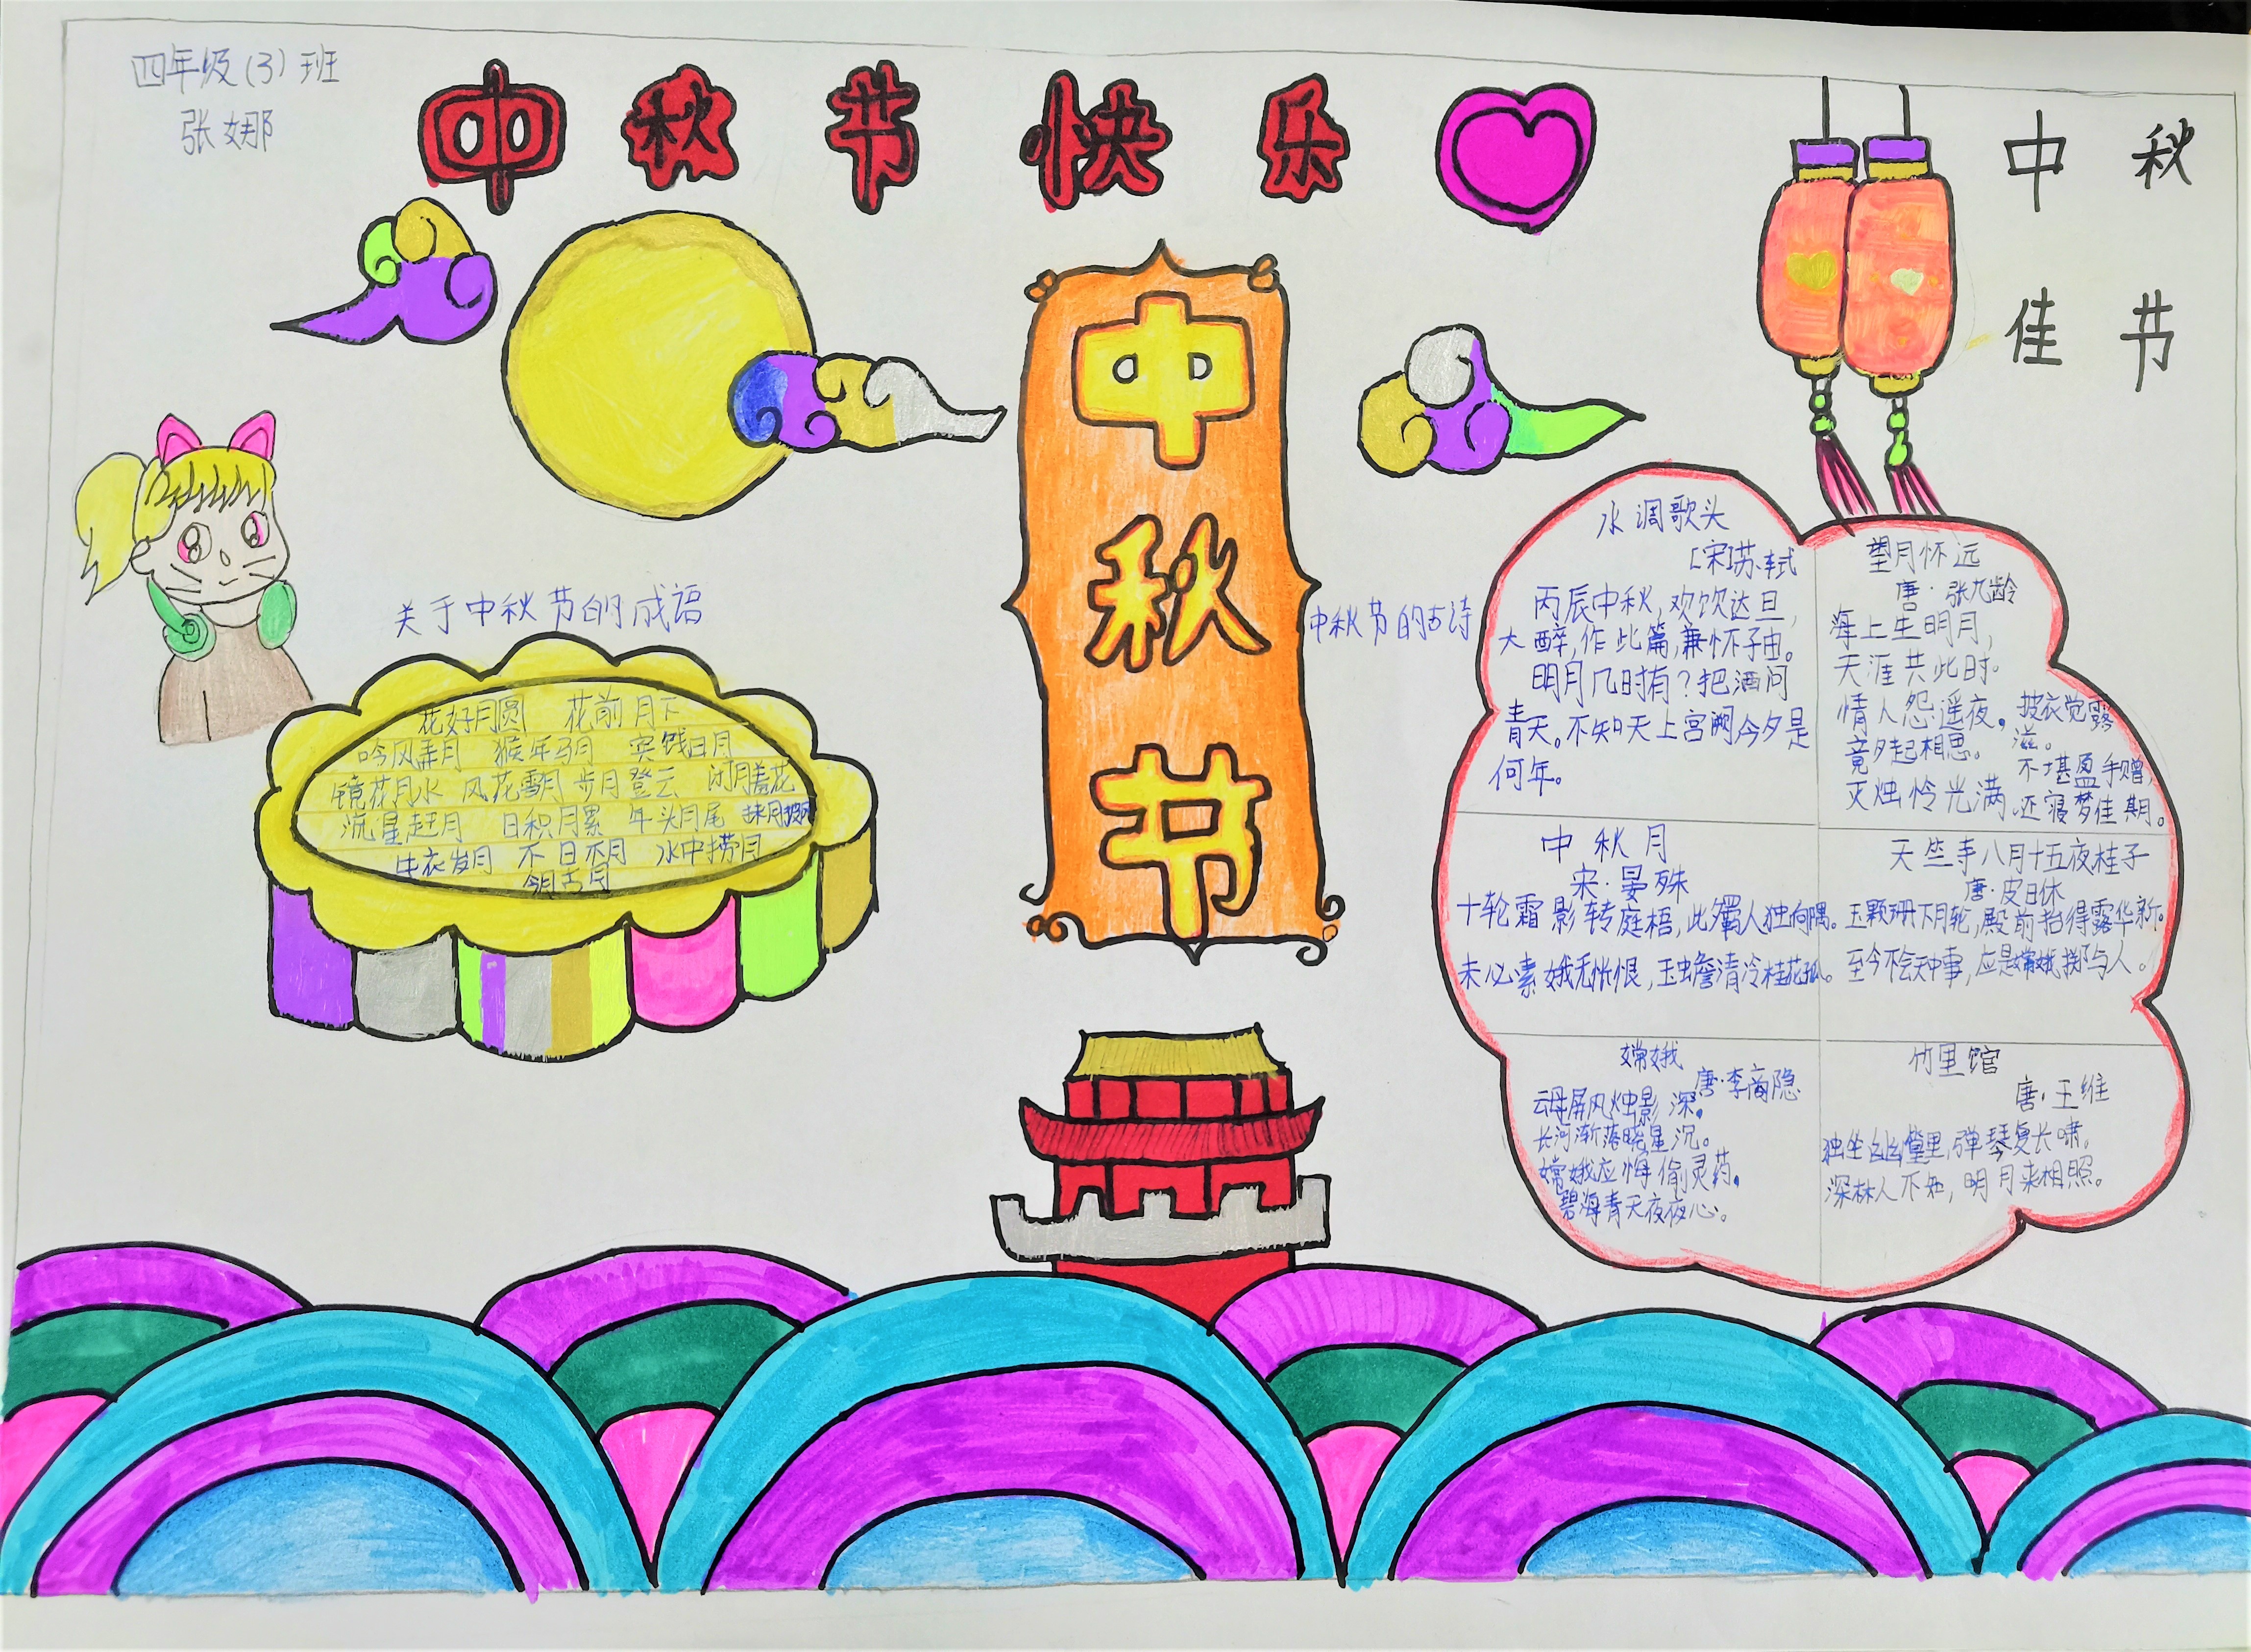 四年级(3)班
张娜
中秋节快乐
中秋
佳节
中秋节
关于中秋节的成语
花好月圆 花前月下
吟风弄月 猴年马月 寅饯日月
镜花月水 风花雪月 步月登云 闭月羞花
流星赶月 日积月累 年头月尾
牛衣岁月 不日不月 水中捞月
今月古月
中秋节的古诗
水调歌头
[宋]苏轼
丙辰中秋,欢饮达旦,
大醉,作此篇,兼怀子由。
明月几时有?把酒问
青天。不知天上宫阙今夕是
何年。
望月怀远
唐·张九龄
海上生明月,
天涯共此时。
情人怨遥夜。
竟夕起相思。
灭烛怜光满
披衣觉露
滋。
不堪盈手赠,
还寝梦佳期。
中秋月
宋·晏殊
十轮霜影转庭梧,此夕羁人独向隅。
未必素娥无怅恨,玉蟾清冷桂花孤。
天竺寺八月十五夜桂子
唐·皮日休
玉颗珊下月轮,殿前拾得露华新。
至今不会天中事,应是嫦娥掷与人。
嫦娥
唐·李商隐
云母屏风烛影深。
长河渐落晓星沉。
嫦娥应悔偷灵药。
碧海青天夜夜心。
竹里馆
唐·王维
独坐幽篁里,弹琴复长啸。
深林人不知,明月来相照。